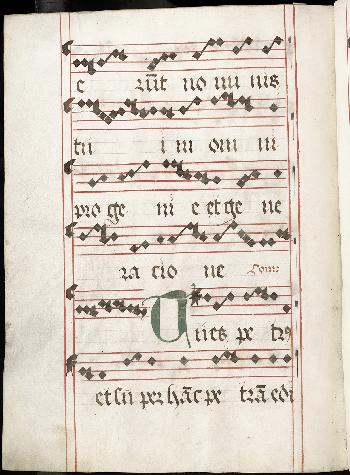 e runt no mi nis
tu i in om ni
pro ge ni e et ge ne
ra tio ne Com:
Tu es pe trꝰ
et su per hāc pe trā edi